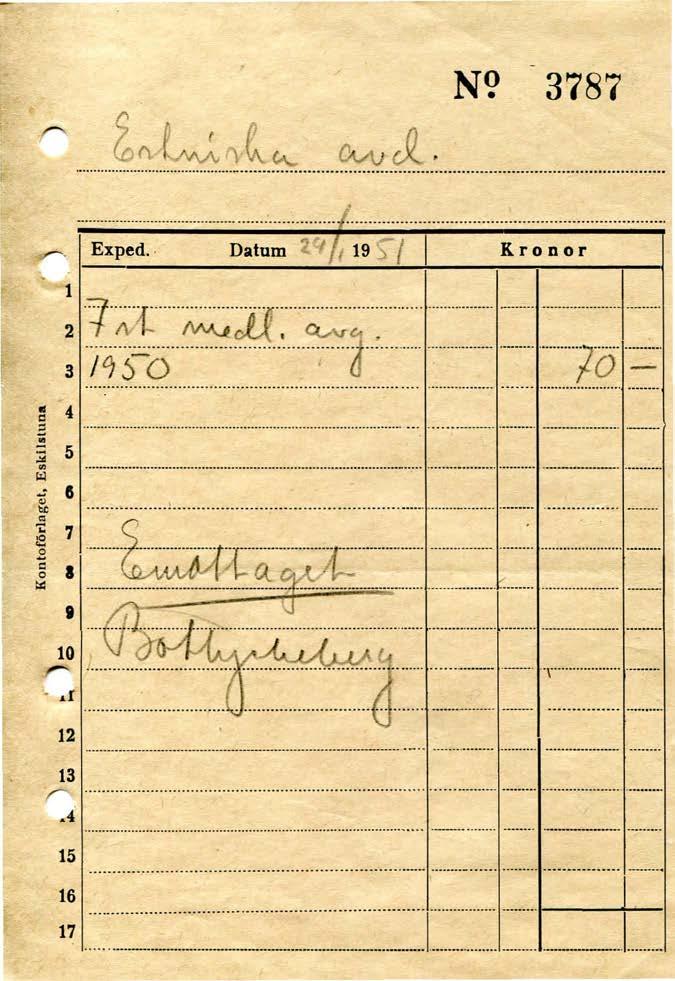 Nº 3787
Estniska avd.
Exped. Datum 29/1 1951 Kronor
1
2 7 st medl. avg.
3 1950 70 —
4
5
6
7
8 Emottaget
9
10
11
12
13
14
15
16
17
Kontoförlaget, Eskilstuna